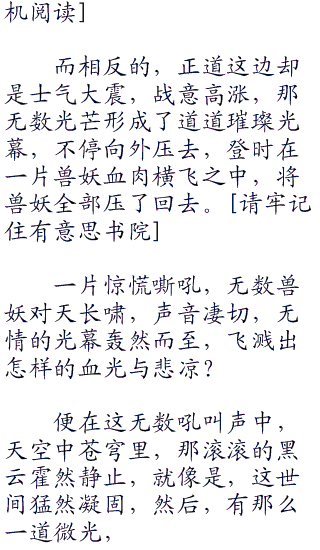 机阅读]
而相反的，正道这边却
是士气大震，战意高涨，那
无数光芒形成了道道璀璨光
幕，不停向外压去，登时在
一片兽妖血肉横飞之中，将
兽妖全部压了回去。[请牢记
住有意思书院]
一片惊慌嘶吼，无数兽
妖对天长啸，声音凄切，无
情的光幕轰然而至，飞溅出
怎样的血光与悲凉？
便在这无数吼叫声中，
天空中苍穹里，那滚滚的黑
云霍然静止，就像是，这世
间猛然凝固，然后，有那么
一道微光，